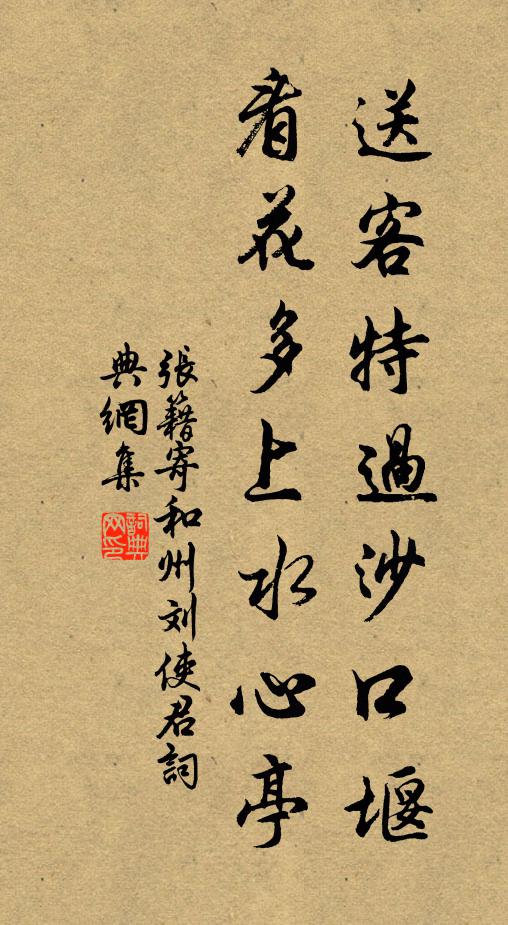 送客特過沙口堰
看花多上水心亭
張籍寄和州刘使君詞
典網集
詞典
网印